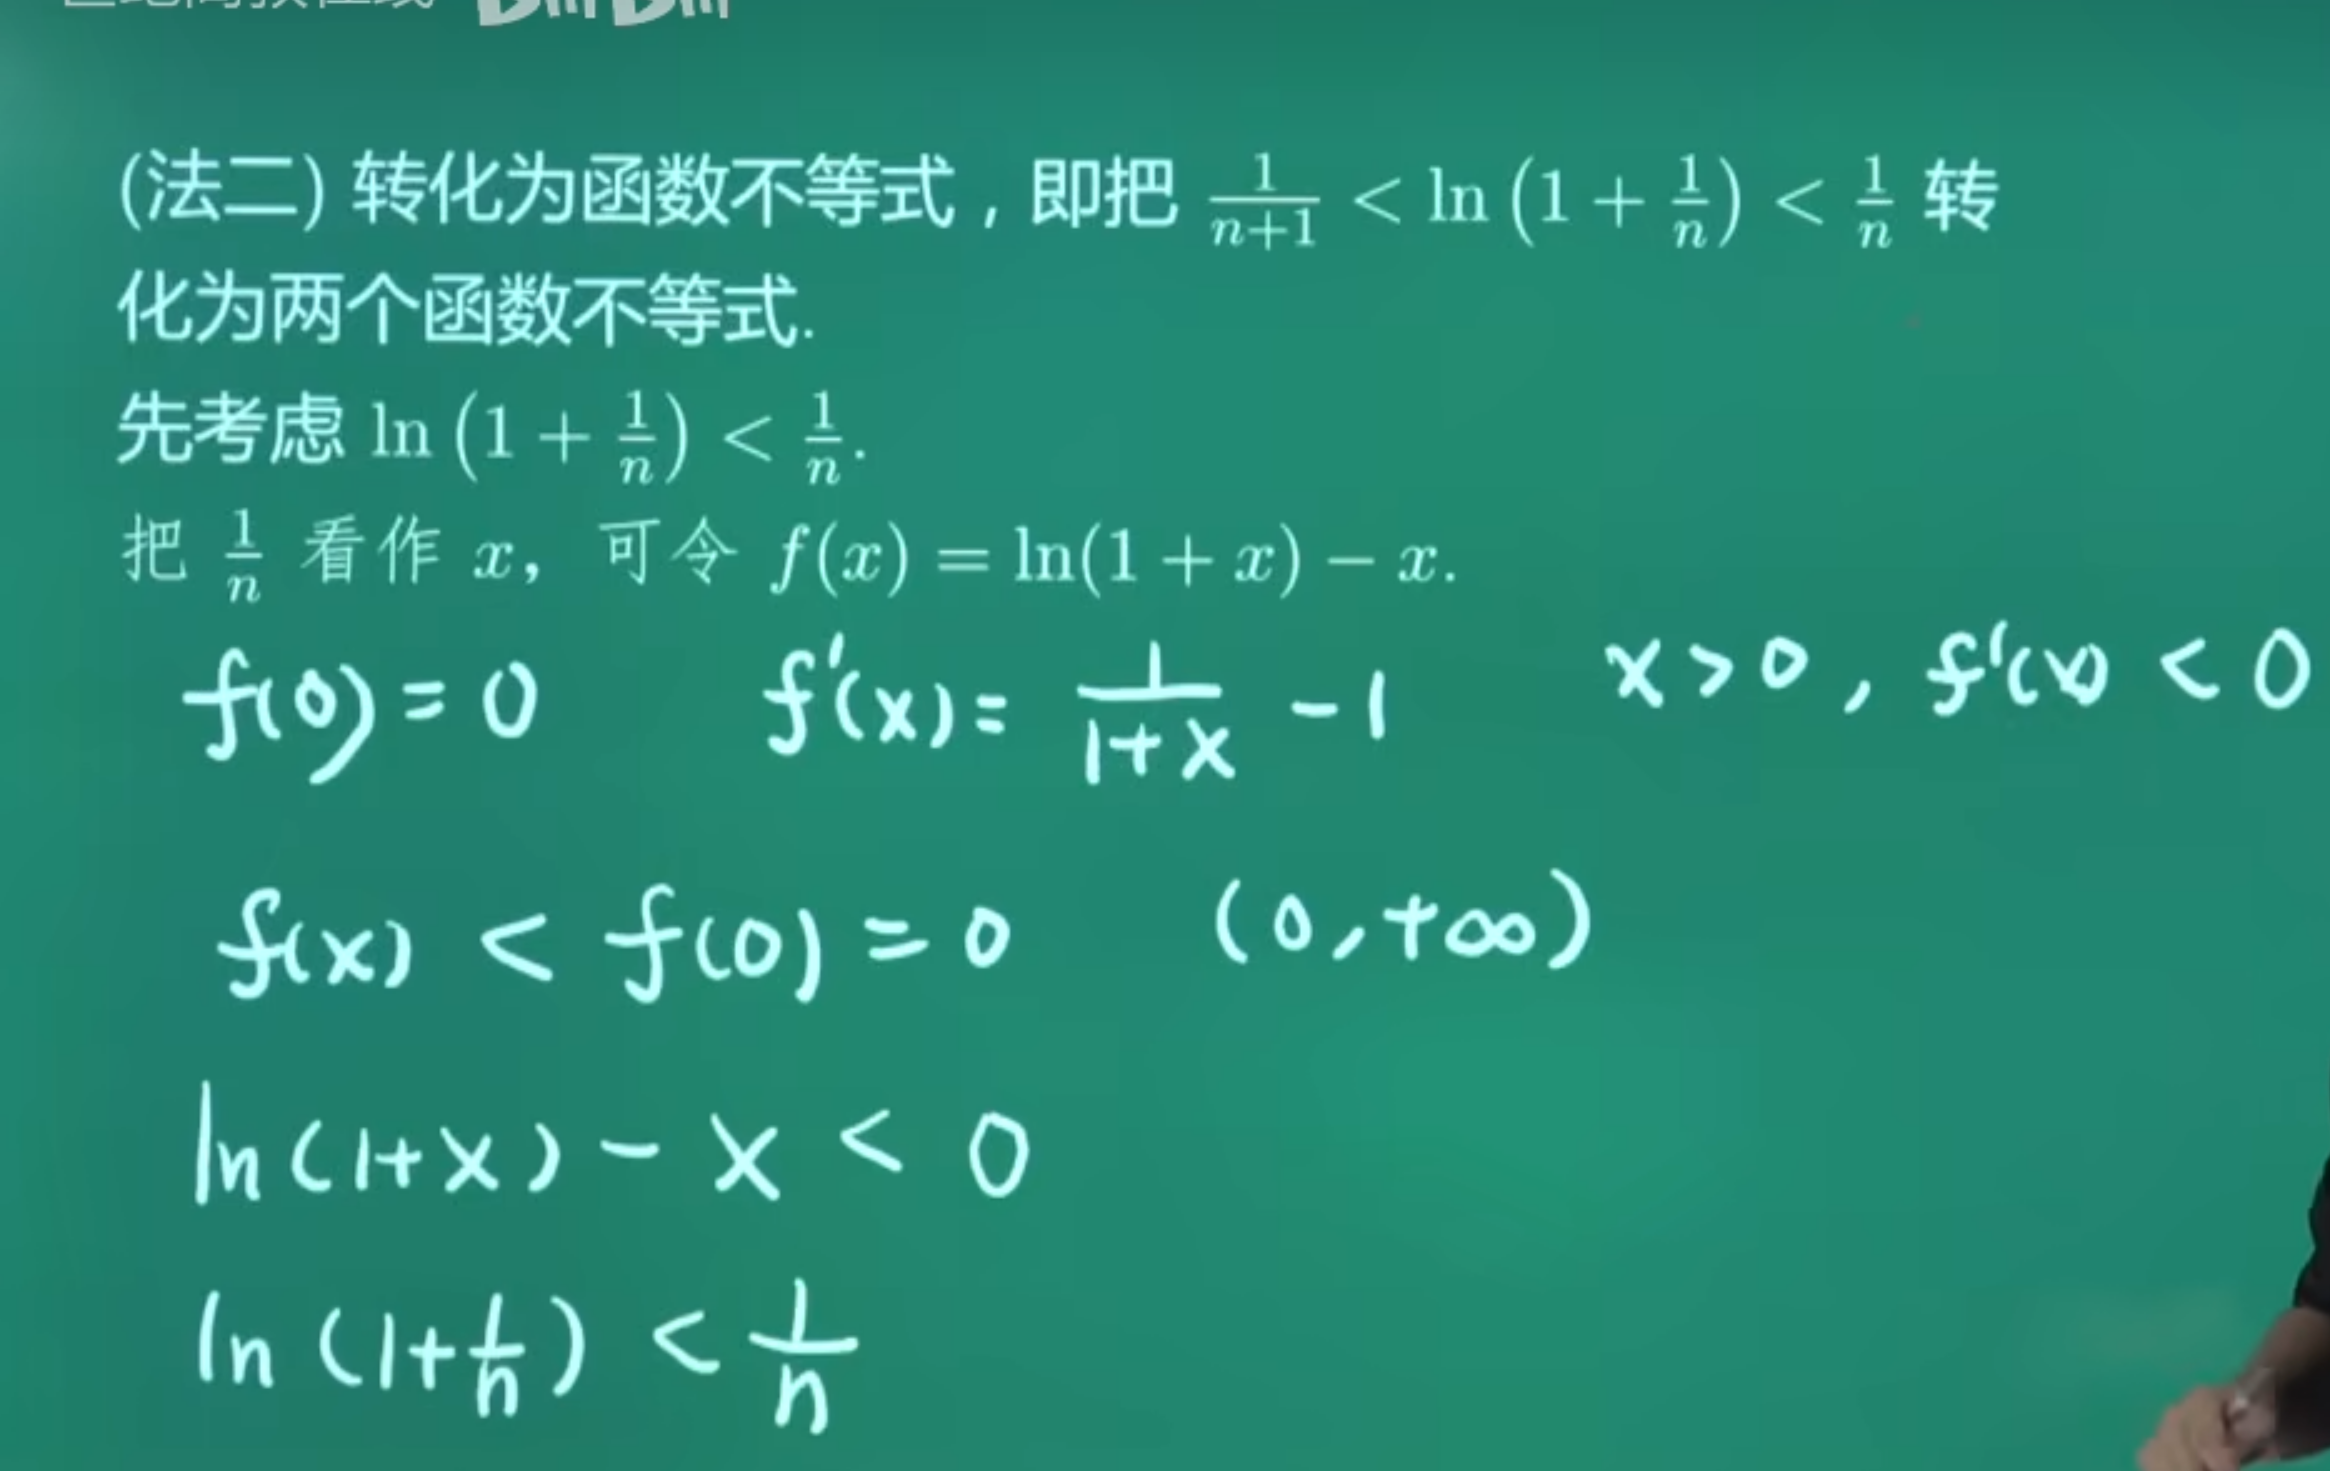 (法二) 转化为函数不等式，即把 1/(n+1) < ln(1 + 1/n) < 1/n 转
化为两个函数不等式.
先考虑 ln(1 + 1/n) < 1/n.
把 1/n 看作 x，可令 f(x) = ln(1 + x) − x.
f(0) = 0 f'(x) = 1/(1+x) − 1 x > 0, f'(x) < 0
f(x) < f(0) = 0 (0, +∞)
ln(1+x) − x < 0
ln(1+1/n) < 1/n